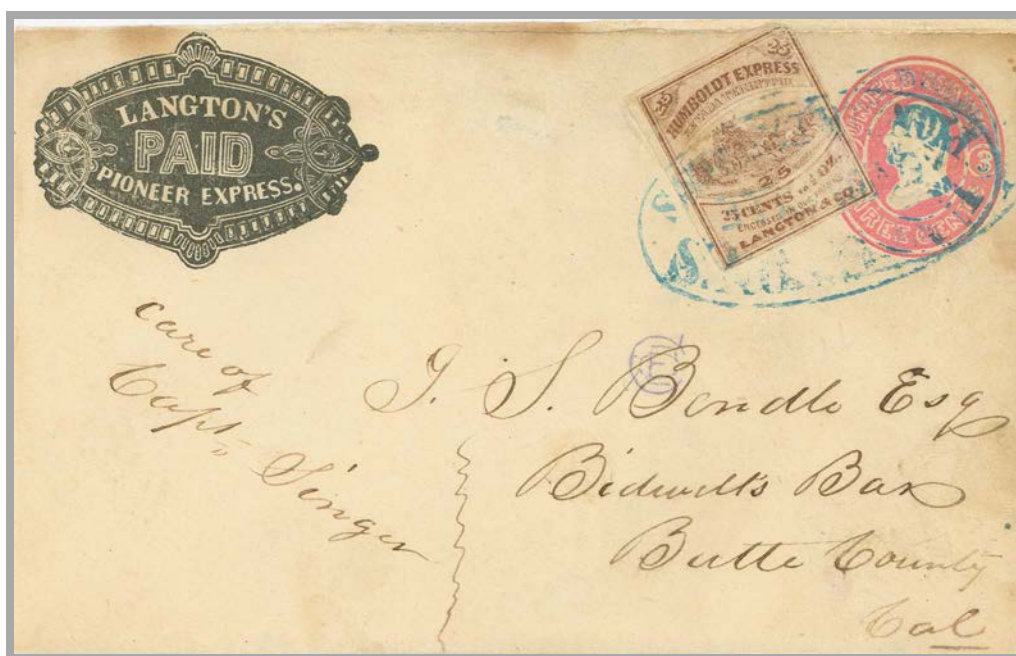 LANGTON'S
PAID
PIONEER EXPRESS.
25 25
HUMBOLDT EXPRESS
25
25 CENTS
LANGTON & CO.
UNITED
THREE CENTS
care of
Capt. Singer
J. S. Bendle Esq
Bidwell's Bar
Butte County
Cal